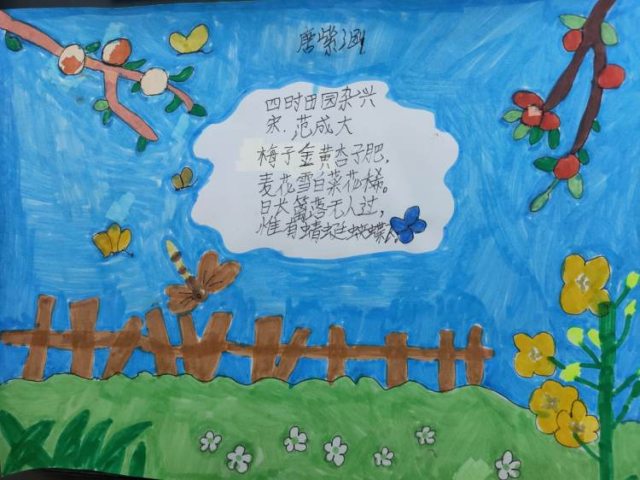 唐紫
四时田园杂兴
宋.范成大
梅子金黄杏子肥,
麦花雪白菜花梯。
日长篱落无人过,
惟有蜻蜓蛱蝶